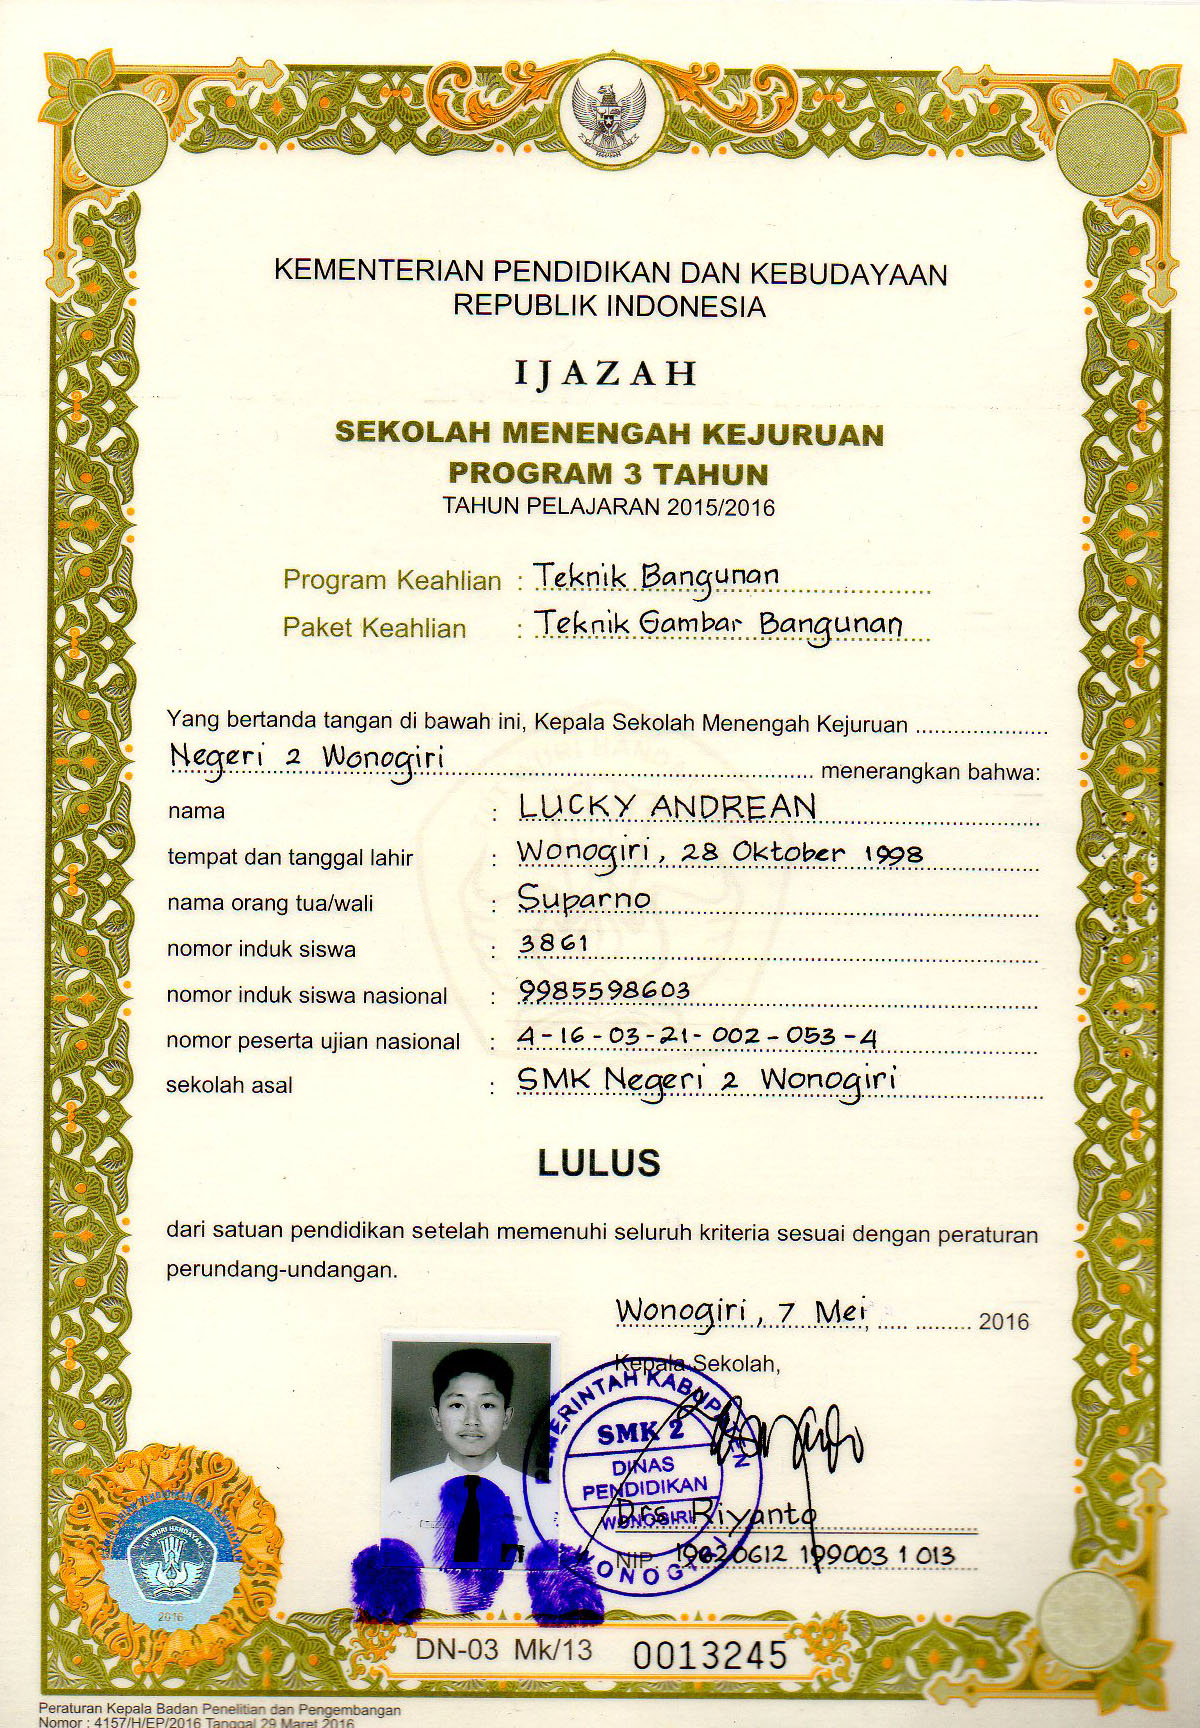 KEMENTERIAN PENDIDIKAN DAN KEBUDAYAAN
REPUBLIK INDONESIA
IJAZAH
SEKOLAH MENENGAH KEJURUAN
PROGRAM 3 TAHUN
TAHUN PELAJARAN 2015/2016
Program Keahlian : Teknik Bangunan
Paket Keahlian : Teknik Gambar Bangunan
Yang bertanda tangan di bawah ini, Kepala Sekolah Menengah Kejuruan
Negeri 2 Wonogiri menerangkan bahwa:
nama : LUCKY ANDREAN
tempat dan tanggal lahir : Wonogiri, 28 Oktober 1998
nama orang tua/wali : Suparno
nomor induk siswa : 3861
nomor induk siswa nasional : 9985598603
nomor peserta ujian nasional : 4-16-03-21-002-053-4
sekolah asal : SMK Negeri 2 Wonogiri
LULUS
dari satuan pendidikan setelah memenuhi seluruh kriteria sesuai dengan peraturan
perundang-undangan.
Wonogiri, 7 Mei, 2016
Kepala Sekolah,
PEMERINTAH KABUPATEN
SMK 2
DINAS
PENDIDIKAN
WONOGIRI
WONOGIRI
Drs. Riyanto
NIP. 19620612 199003 1 013
TUT WURI HANDAYANI
2016
DN-03 Mk/13 0013245
Peraturan Kepala Badan Penelitian dan Pengembangan
Nomor : 4157/H/EP/2016 Tanggal 29 Maret 2016